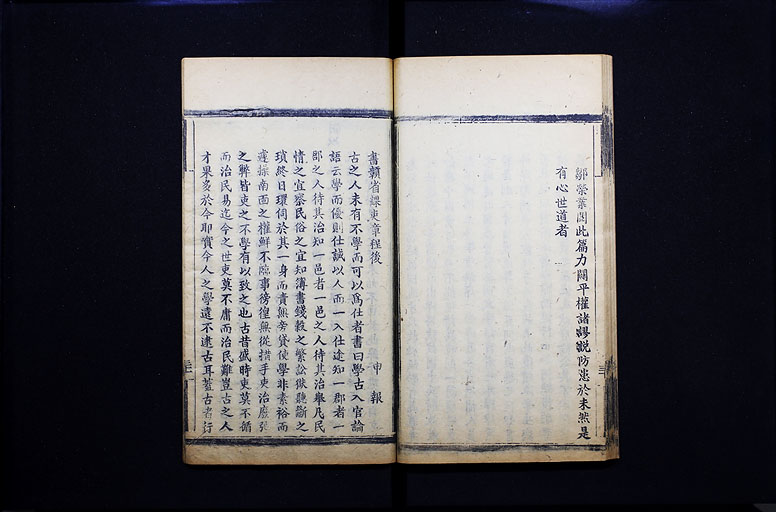 鄒榮業閱此篇力闢平權諸謬說防患於未然是
有心世道者
書贛省課吏章程後
申報
古之人未有不學而可以為仕者書曰學古入官論
語云學而優則仕誠以人而一入仕途知一郡者一
郡之人待其治知一邑者一邑之人待其治舉凡民
情之宜察民俗之宜知簿書錢穀之繁訟獄聽斷之
瑣終日環伺於其一身而責無旁貸使學非素裕而
遽操南面之權鮮不臨事徬徨無從措手吏治廢弛
之弊皆吏之不學有以致之也古昔盛時吏莫不循
而治民易迄今之世吏莫不庸而治民難豈古之人
才果多於今耶實今人之學遠不逮古耳蓋古者行